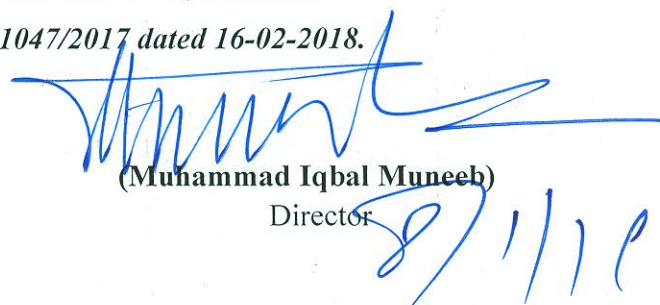 1047/2017 dated 16-02-2018.
(Muhammad Iqbal Muneeb)
Director